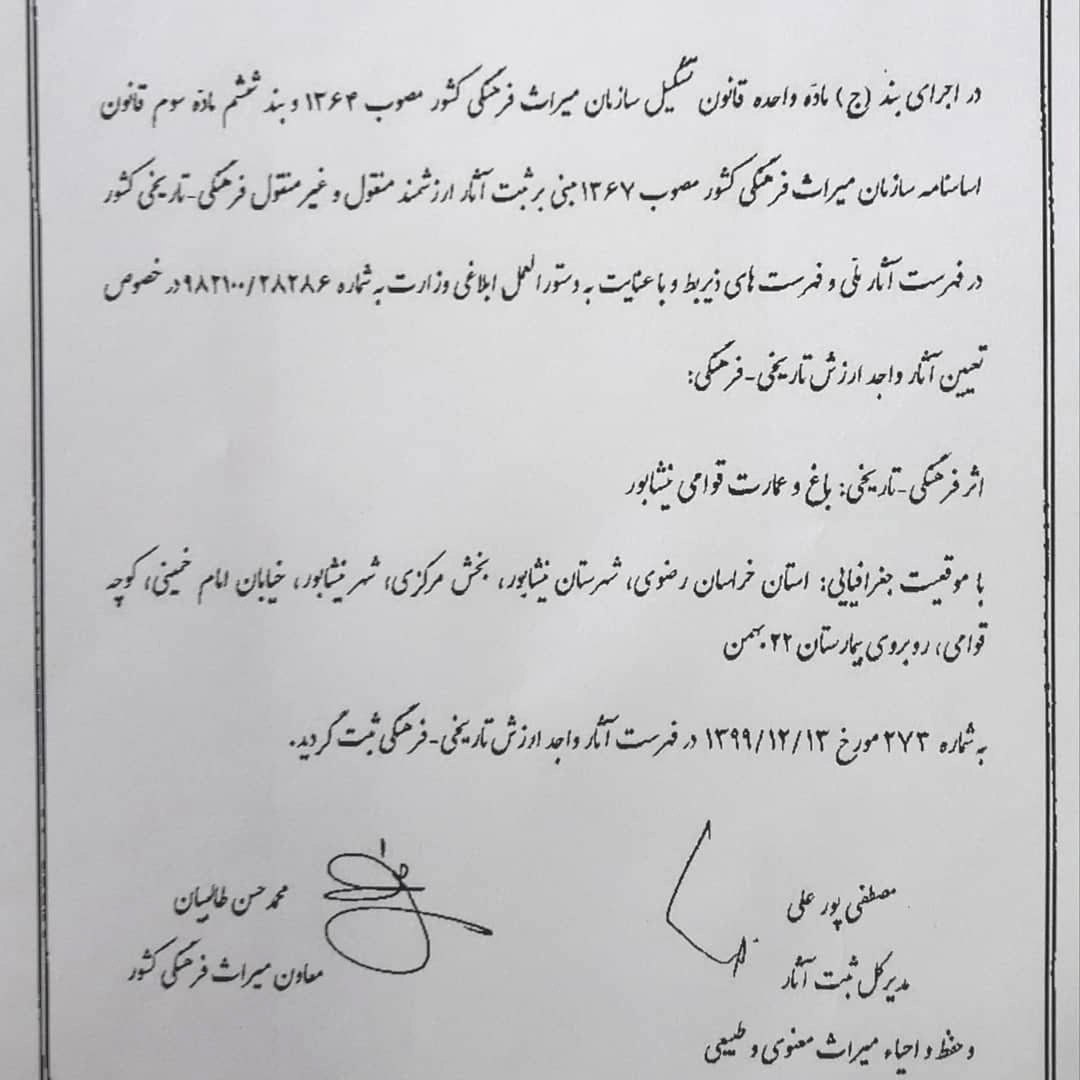 در اجرای بند (ج) مادّه واحده قانون تشکیل سازمان میراث فرهنگی کشور مصوب ۱۳۶۴ و بند ششم مادّه سوم قانون
اساسنامه سازمان میراث فرهنگی کشور مصوب ۱۳۶۷ مبنی بر ثبت آثار ارزشمند منقول و غیر منقول فرهنگی-تاریخی کشور
در فهرست آثار ملّی و فهرست های ذیربط و با عنایت به دستورالعمل ابلاغی وزارت به شماره ۹۸۲۱۰۰/۲۸۲۸۶ در خصوص
تعیین آثار واجد ارزش تاریخی-فرهنگی:
اثر فرهنگی-تاریخی: باغ و عمارت قوامی نیشابور
با موقعیت جغرافیایی: استان خراسان رضوی، شهرستان نیشابور، بخش مرکزی، شهر نیشابور، خیابان امام خمینی، کوچه
قوامی، روبروی بیمارستان ۲۲ بهمن
به شماره ۲۷۳ مورخ ۱۳۹۹/۱۲/۱۳ در فهرست آثار واجد ارزش تاریخی-فرهنگی ثبت گردید.
مصطفی پور علی
مدیرکل ثبت آثار
و حفظ و احیاء میراث معنوی و طبیعی
محمد حسن طالبیان
معاون میراث فرهنگی کشور